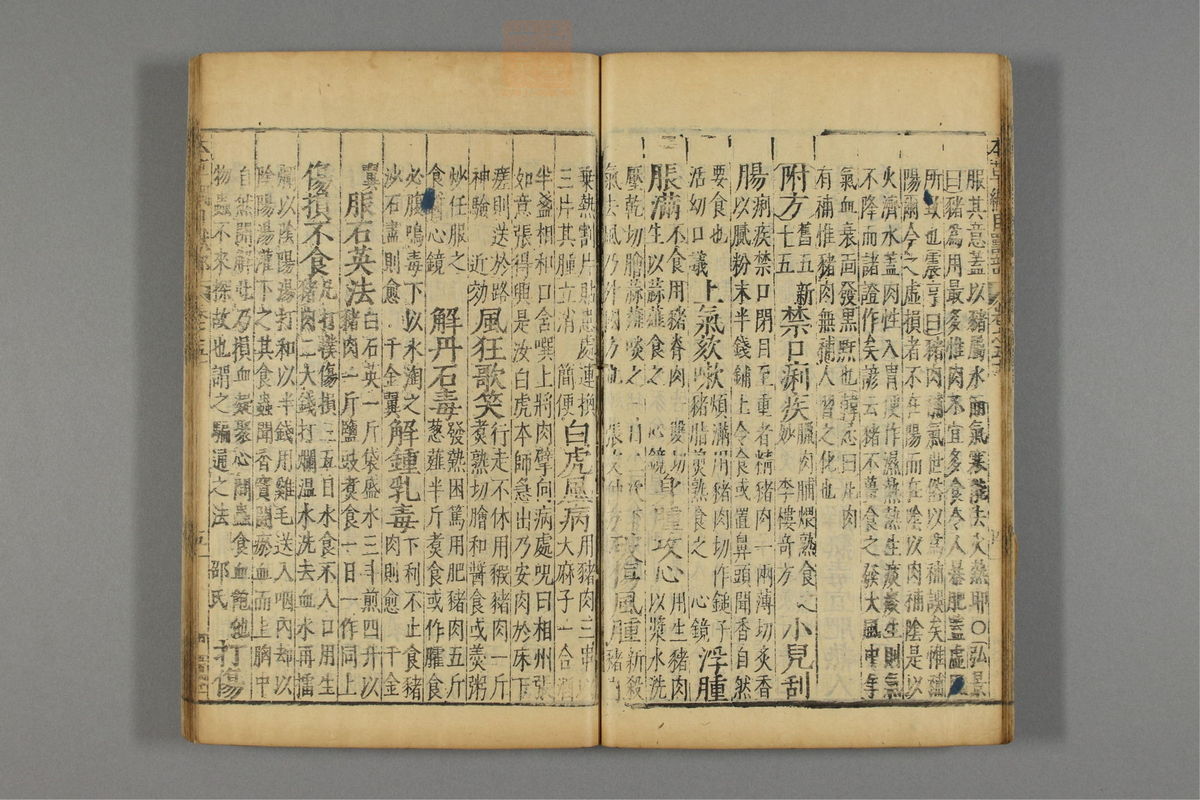 服其意蓋以豬屬水
曰豬為用最多惟肉不宜多食令人暴肥蓋虛
所致也震亨曰豬肉補氣世俗以為補誤矣惟補
陽爾今之虛損者不在陽而在陰以肉補陰是以
火濟水蓋肉性入胃便作濕熱熱生痰痰生則氣
不降而諸證作矣諺云豬不薑食之發大風中年
氣血衰面發黑䵟也韓𢘅曰凡肉
有補惟豬肉無補人習之化也
附方舊五新十五
禁口痢疾臘肉脯煨熟食之妙李樓奇方
小兒刮
腸痢疾禁口閉目至重者精豬肉一兩薄切炙香
以膩粉末半錢鋪上令食或置鼻頭聞香自然
要食也
活幼口議
上氣欬嗽煩滿用豬肉切作鎚子豬脂煎熟食之
心鏡
浮腫
脹滿不食用豬脊肉一雙切
生以蒜薤食之
心鏡
身腫攻心用生豬肉以漿水洗
壓乾切膾蒜薤啖之
乘熱割片貼患處連換
三片其腫立消
簡便
白虎風病用豬肉三串
大麻子一合酒
半盞相和口含噀上將肉擘向病處咒曰相州張
如意張得興是汝白虎本師急出乃安肉於床下
瘥則送於路
神驗
近效
風狂歌笑行走不休用豭豬肉一斤
煮熟切膾和醬食或羹粥
炒任服之
食醫心鏡
解丹石毒發熱困篤用肥豬肉五斤
葱薤半斤煮食或作臛食
必腹鳴毒下以水淘之
沙石盡則愈
千金翼
解鍾乳毒下利不止食豬
肉則愈千金
翼
服石英法白石英一斤袋盛水三斗煎四升以
豬肉一斤鹽豉煮食一日一作同上
傷損不食凡打撲傷損三五日水食不入口用生
豬肉二大錢打爛溫水洗去血水再擂
爛以陰陽湯打和以半錢用雞毛送入咽內却以
陰陽湯灌下之其食蟲聞香竇開瘀血而上胸中
自然開解此乃損血凝聚心間蟲食血飽他
物蟲不來探故也謂之騙通之法
邵氏
打傷